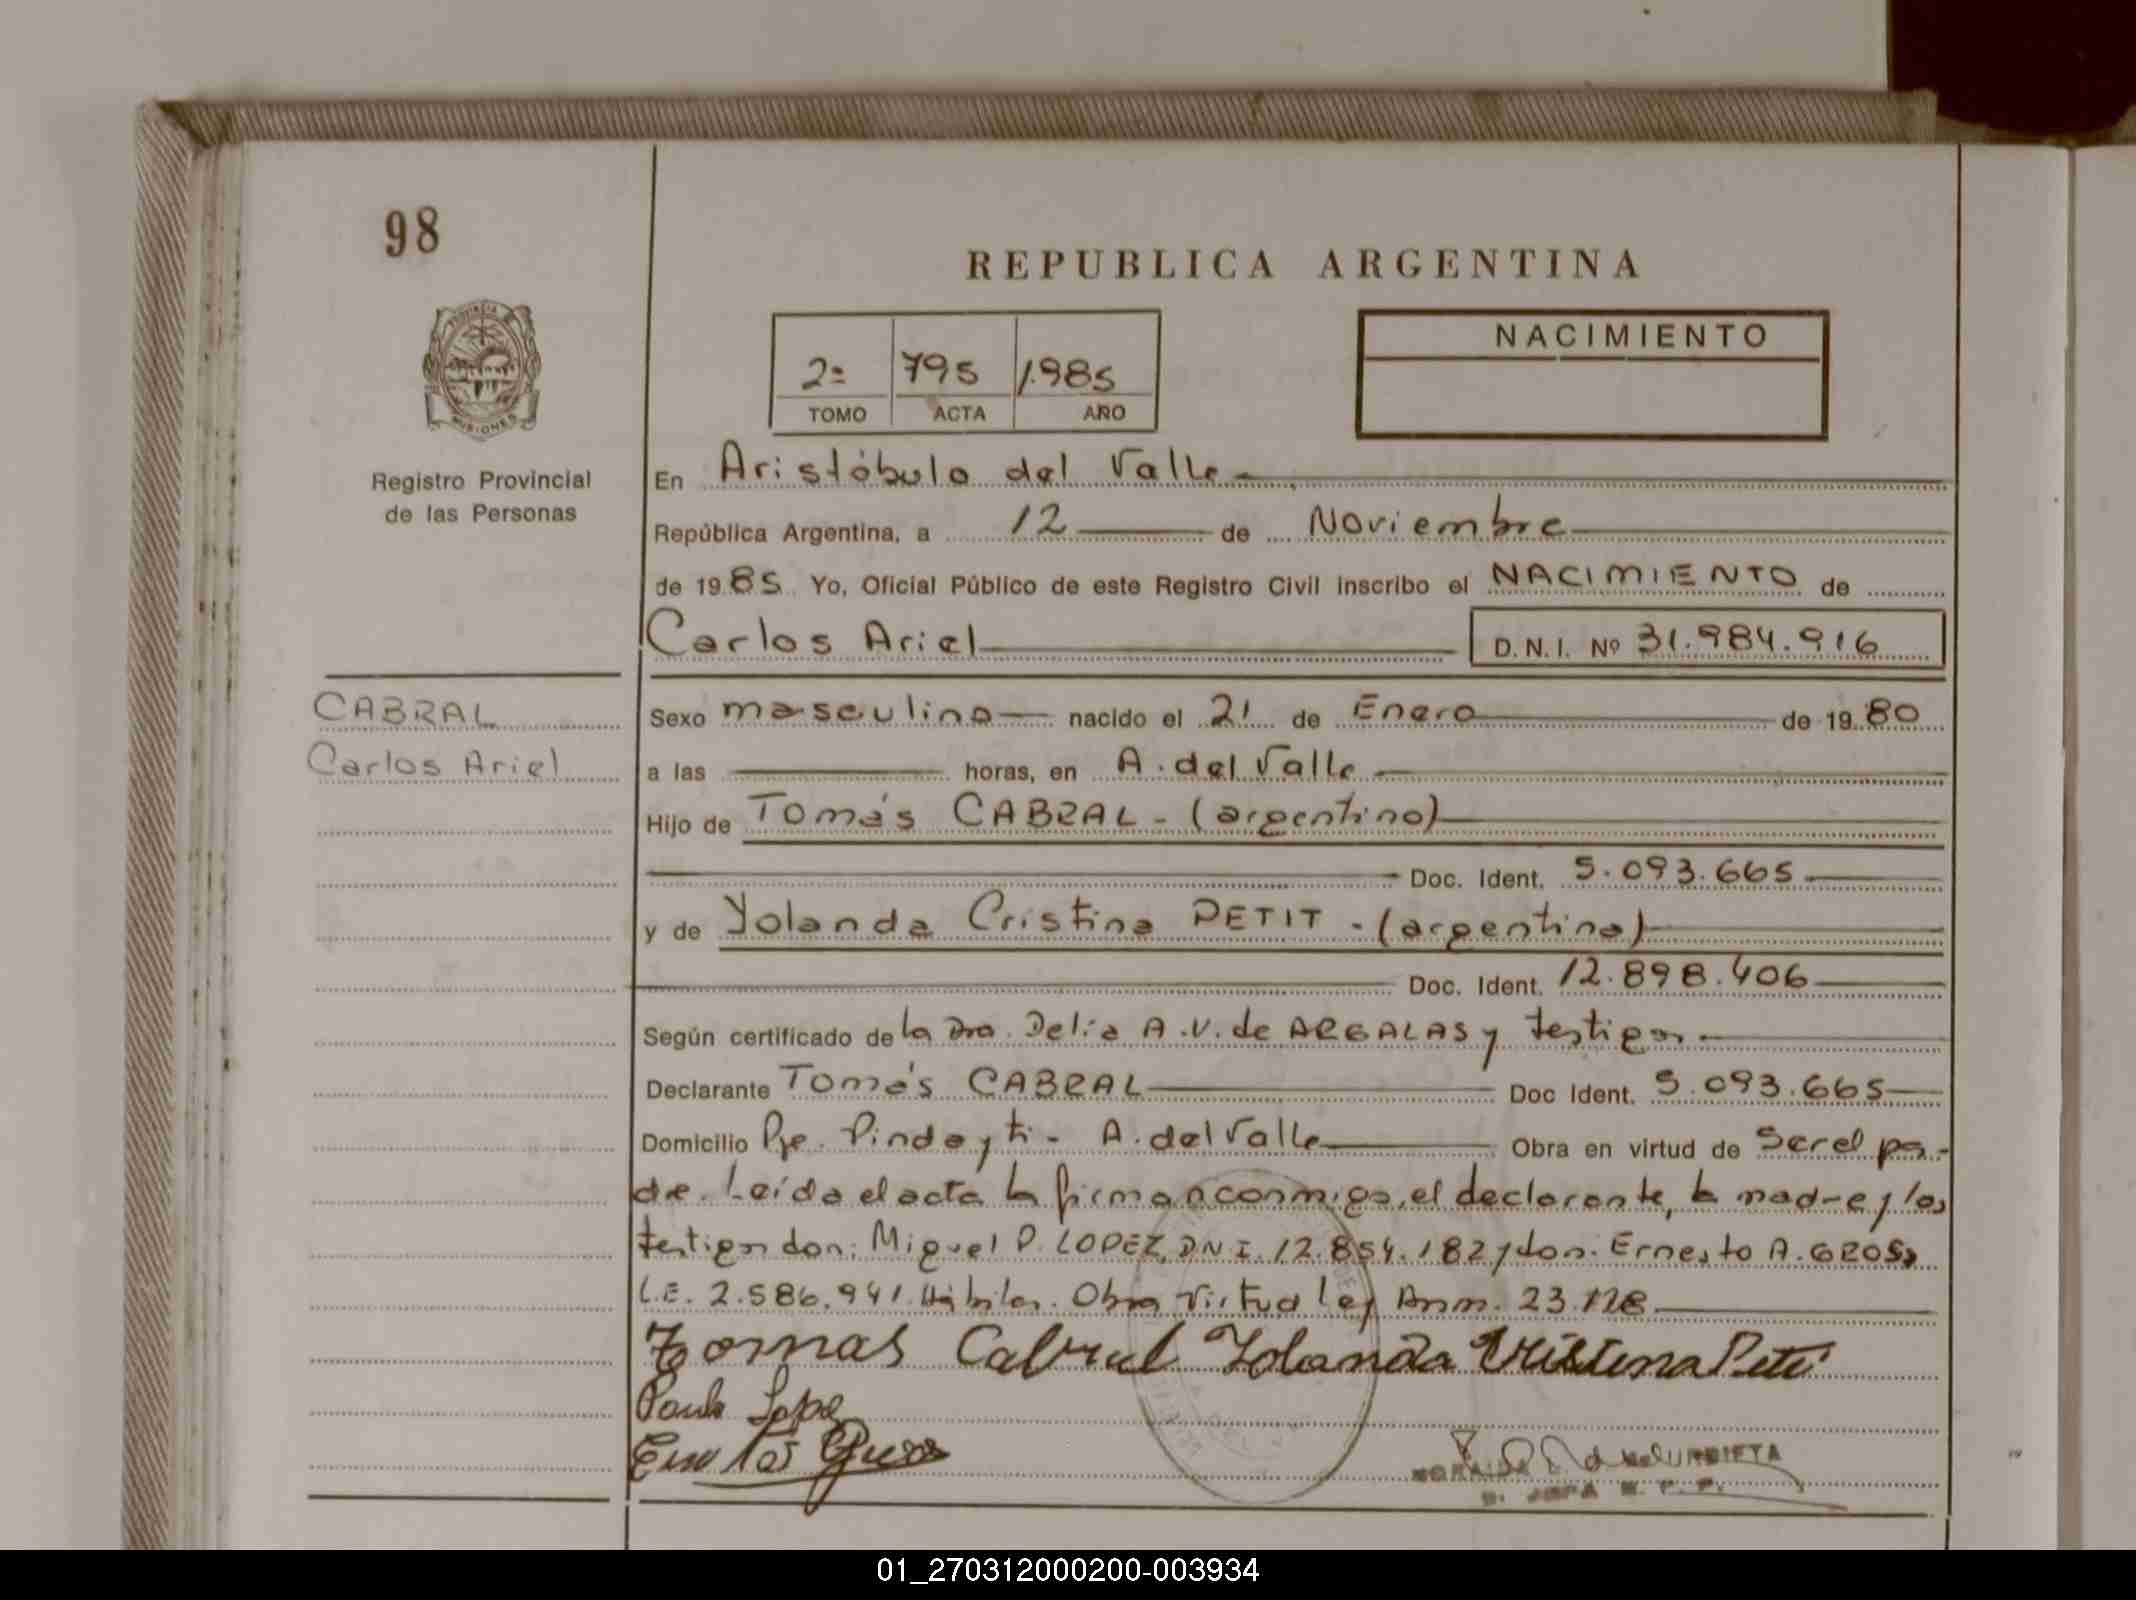 98
REPUBLICA ARGENTINA
NACIMIENTO
2º 795 1.985
TOMO ACTA AÑO
PROVINCIA
MISIONES
Registro Provincial
de las Personas
En Aristóbulo del Valle
República Argentina, a 12 de Noviembre
de 1985 Yo, Oficial Público de este Registro Civil inscribo el NACIMIENTO de
Carlos Ariel D.N.I. Nº 31.984.916
CABRAL
Carlos Ariel
Sexo masculino nacido el 21 de Enero de 1980
a las horas, en A. del Valle
Hijo de Tomás CABRAL - (argentino)
Doc. Ident. 5.093.665
y de Yolanda Cristina PETIT - (argentina)
Doc. Ident. 12.898.406
Según certificado de la Dra. Delia A.V. de ARGALAS y testigos
Declarante Tomás CABRAL Doc Ident. 5.093.665
Domicilio Pje. Pindayti - A. del Valle Obra en virtud de Ser el pa-
dre. Leída el acta la firman conmigo, el declarante, la madre y los
testigos don: Miguel P. LOPEZ, D.N.I. 12.854.182 y don. Ernesto A. GROSS
L.E. 2.586.941. Hábiles. Obra Virtud ley Amn. 23.128
Tomas Cabral Yolanda Cristina Petit
Lopez
URDIETA
01_270312000200-003934